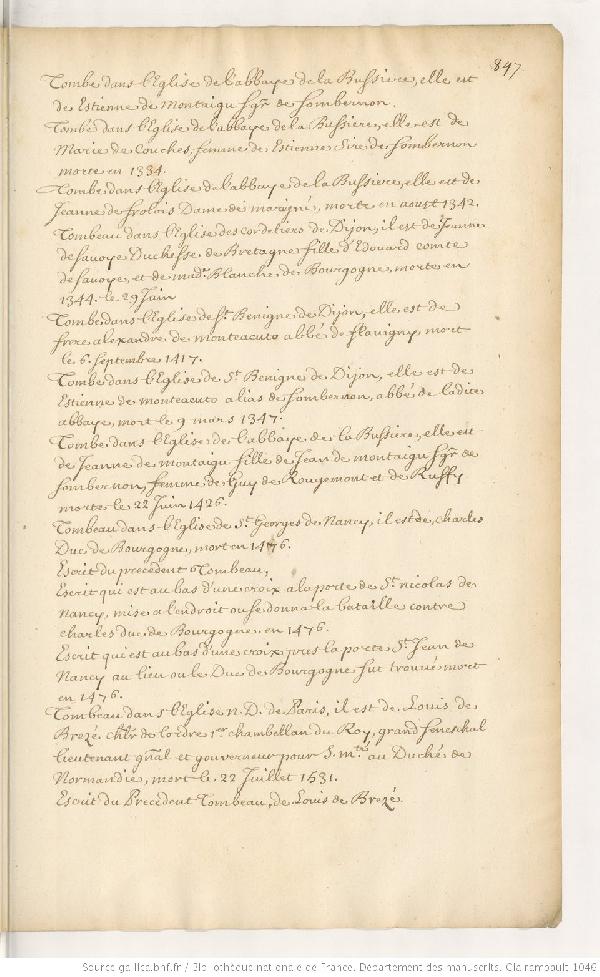 847
Tombe dans l'Eglise de l'abbaye de la Bussiere, elle est
de Estienne de Montaigu sgr de Sombernon.
Tombe dans l'Eglise de l'abbaye de la Bussiere, elle est de
Marie de Couches, femme de Estienne Sire de Sombernon
morte en 1334.
Tombe dans l'Eglise de l'abbaye de la Bussiere, elle est de
Jeanne de frolois Dame de marigni, morte en aoust 1342.
Tombeau dans l'Eglise des cordeliers de Dijon, il est de Jeanne
de savoye Duchesse de Bretagne fille d'Edouard comte
de savoye, et de mad.e Blanche de Bourgogne, morte en
1344. le 29 Juin
Tombe dans l'Eglise de St. Benigne de Dijon, elle est de
frere alexandre de monteacuto abbé de flavigny, mort
le 6. septembre 1417.
Tombe dans l'Eglise de St. Benigne de Dijon, elle est de
Estienne de monteacuto alias de Sombernon, abbé de ladite
abbaye, mort le 9 mars 1347.
Tombe dans l'Eglise de l'abbaye de la Bussiere, elle est
de Jeanne de montaigu fille de Jean de montaigu sgr de
Sombernon, femme de Guy de Rougemont et de Ruffy
morte le 22 Juin 1426.
Tombeau dans l'Eglise de St. Georges de Nancy, il est de charles
Duc de Bourgogne, mort en 1476.
Escrit du precedent Tombeau,
Escrit qui est au bas d'une croix a la porte de St. nicolas de
Nancy, mise a l'endroit ou se donna la bataille contre
charles duc de Bourgogne, en 1476.
Escrit qui est au bas d'une croix pres la porte St. Jean de
Nancy au lieu ou le Duc de Bourgogne fut trouvé mort
en 1476.
Tombeau dans l'Eglise N. D. de Paris, il est de Louis de
Brezé chlr de l'ordre 1er chambellan du Roy, grand seneschal
lieutenant gnal et gouverneur pour S. mté au Duché de
Normandie, mort le 22 Juillet 1531.
Escrit du Precedent Tombeau, de Louis de Brezé
Source gallica.bnf.fr / Bibliothèque nationale de France. Département des manuscrits. Clairambault 1046